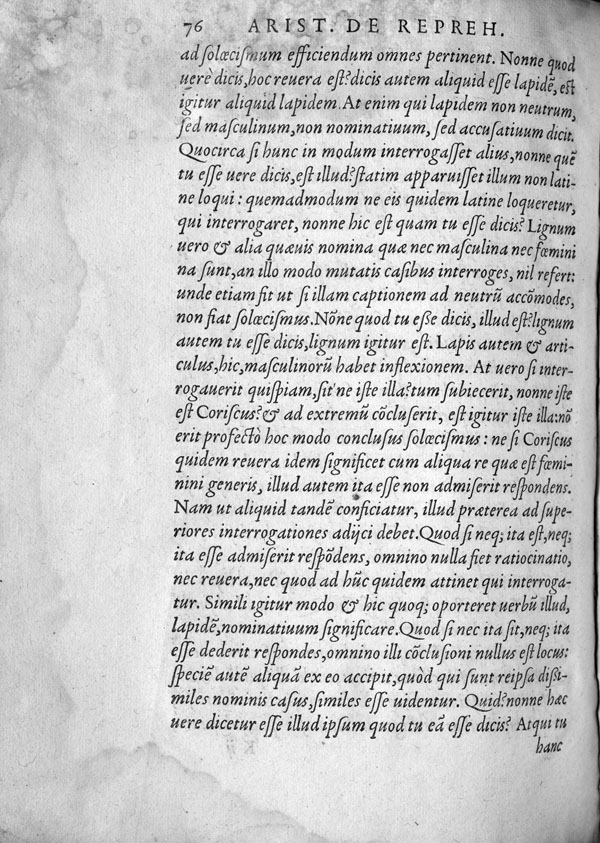 76 ARIST. DE REPREH.
ad solœcismum efficiendum omnes pertinent. Nonne quod
uere dicis, hoc reuera est? dicis autem aliquid esse lapidē, est
igitur aliquid lapidem. At enim qui lapidem non neutrum,
sed masculinum, non nominatiuum, sed accusatiuum dicit.
Quocirca si hunc in modum interrogasset alius, nonne quē
tu esse uere dicis, est illud? statim apparuisset illum non lati-
ne loqui: quemadmodum ne eis quidem latine loqueretur,
qui interrogaret, nonne hic est quam tu esse dicis? Lignum
uero & alia quæuis nomina quæ nec masculina nec fœmini
na sunt, an illo modo mutatis casibus interroges, nil refert:
unde etiam fit ut si illam captionem ad neutrū accōmodes,
non fiat solœcismus. Nōne quod tu esse dicis, illud est? lignum
autem tu esse dicis, lignum igitur est. Lapis autem & arti-
culus, hic, masculinorū habet inflexionem. At uero si inter-
rogauerit quispiam, sit'ne iste illa? tum subiecerit, nonne iste
est Coriscus? & ad extremū cōcluserit, est igitur iste illa: nō
erit profectò hoc modo conclusus solœcismus: ne si Coriscus
quidem reuera idem significet cum aliqua re quæ est fœmi-
nini generis, illud autem ita esse non admiserit respondens.
Nam ut aliquid tandē conficiatur, illud præterea ad supe-
riores interrogationes adijci debet. Quod si neq; ita est, neq;
ita esse admiserit respōdens, omnino nulla fiet ratiocinatio,
nec reuera, nec quod ad hūc quidem attinet qui interroga-
tur. Simili igitur modo & hic quoq; oporteret uerbū illud,
lapidē, nominatiuum significare. Quod si nec ita sit, neq; ita
esse dederit respondēs, omnino illi cōclusioni nullus est locus:
speciē autē aliquā ex eo accipit, quòd qui sunt reipsa dissi-
miles nominis casus, similes esse uidentur. Quid? nonne hæc
uere dicetur esse illud ipsum quod tu eā esse dicis? Atqui tu
hanc